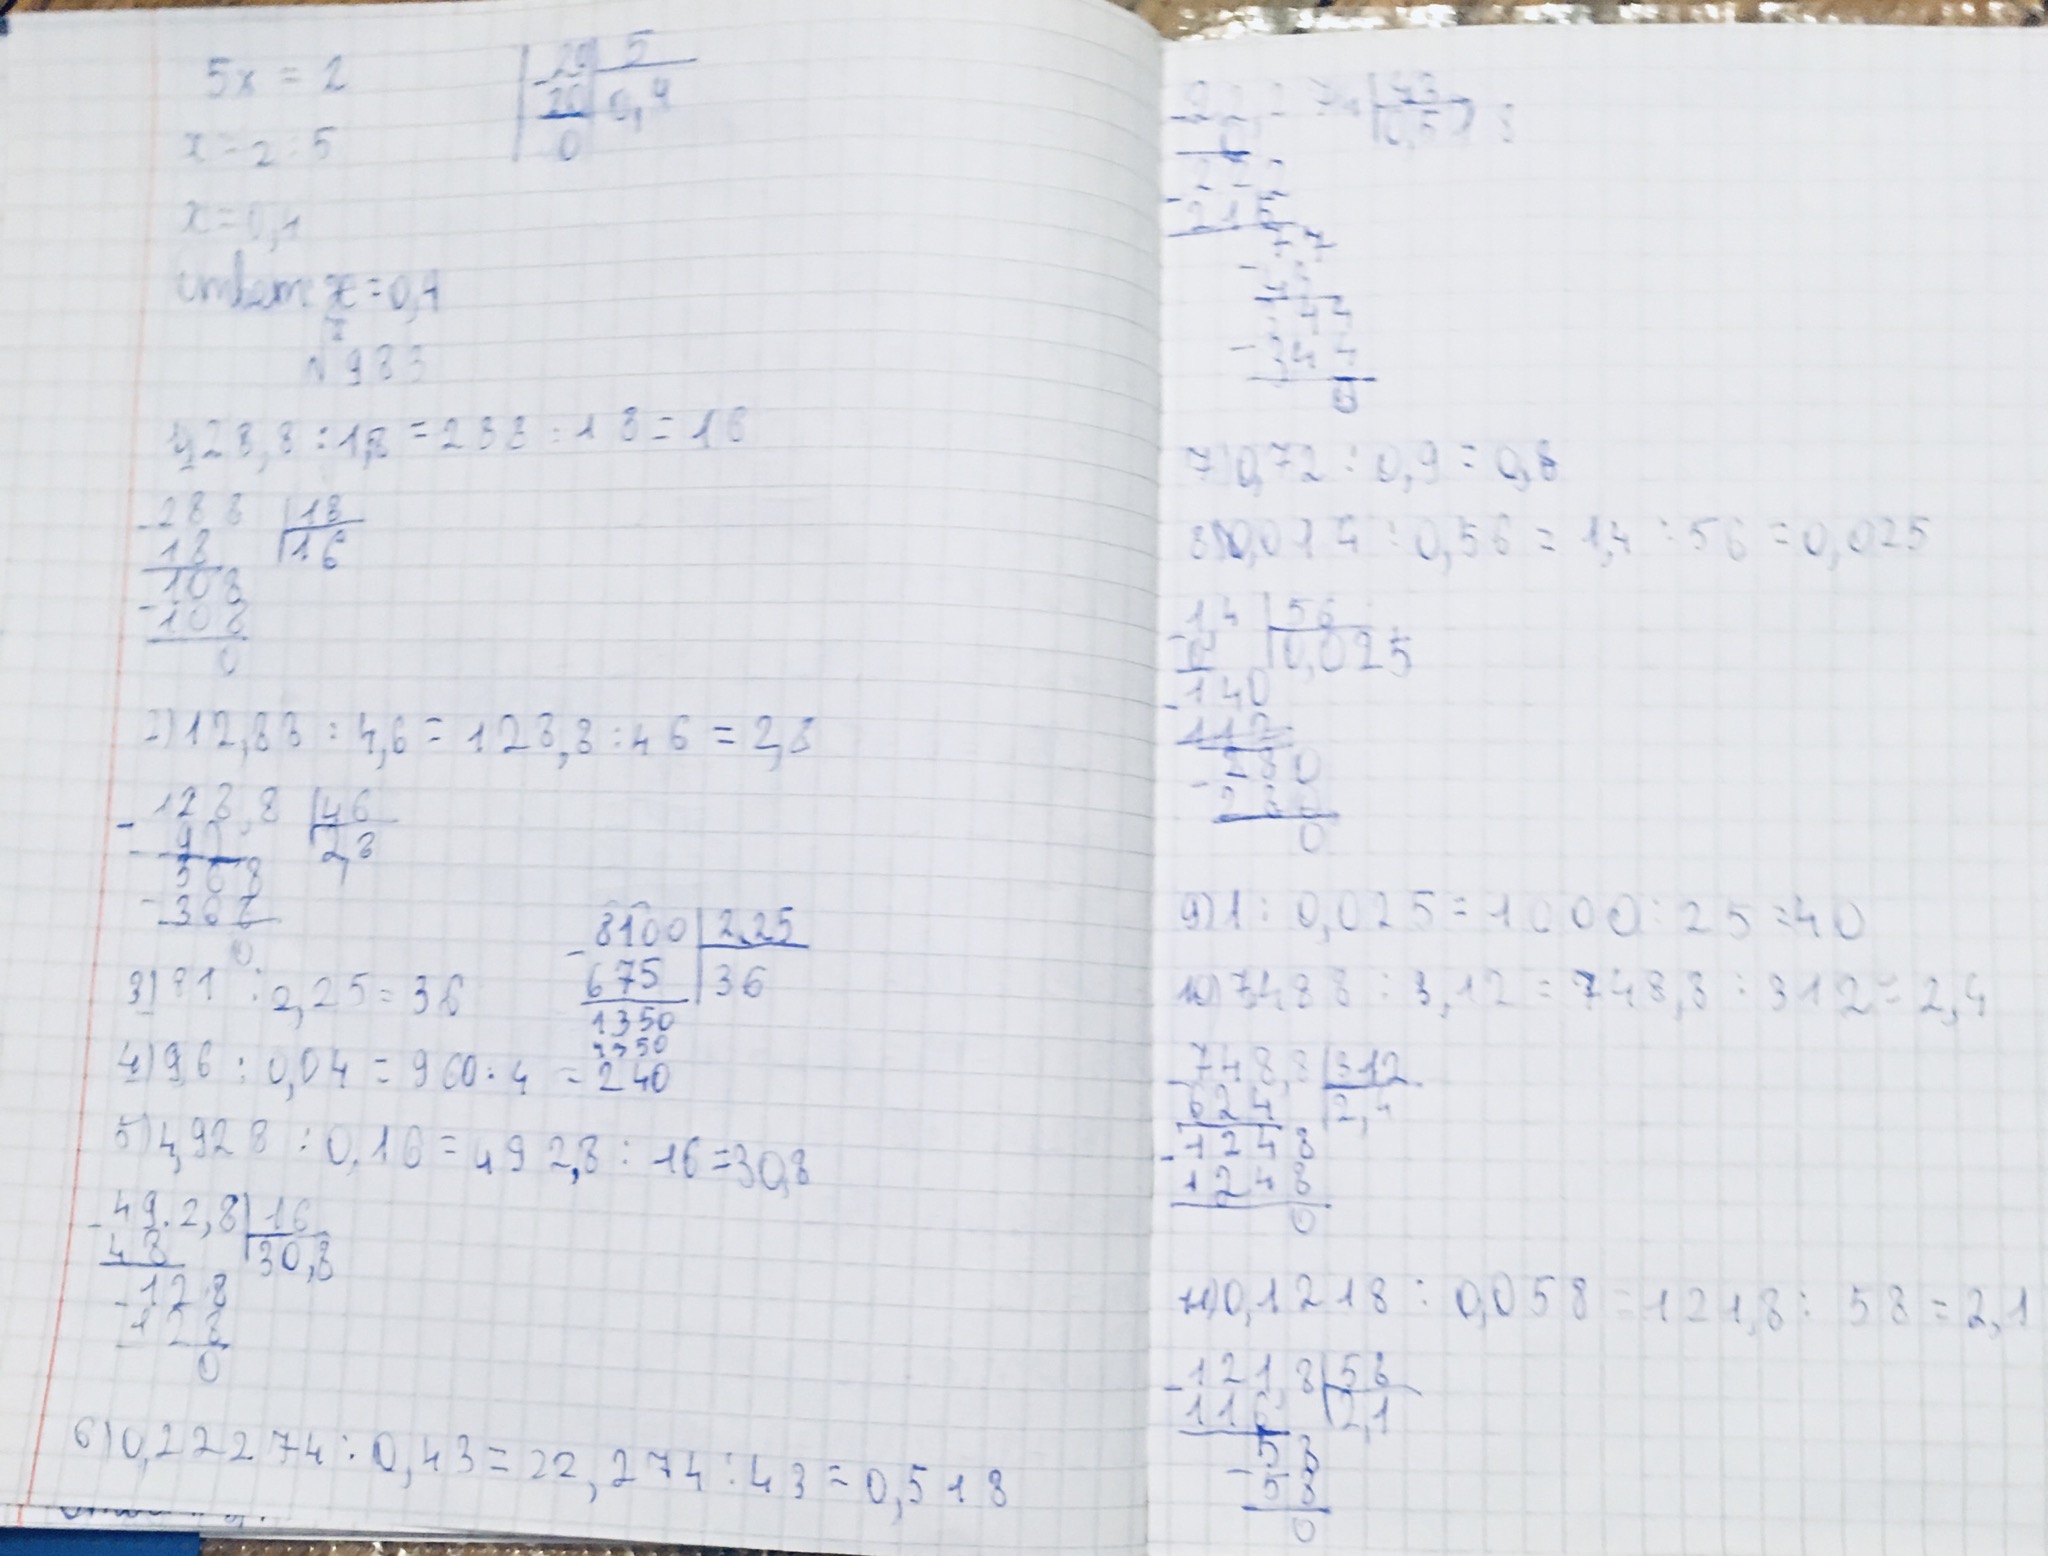 5x = 2
20 | 5
- 20 | 0,4
0
x = 2 : 5
x = 0,4
ответ: x = 0,4
№ 983
1) 28,8 : 1,8 = 288 : 18 = 16
- 288 | 18
18 | 16
- 108
108
0
2) 12,88 : 4,6 = 128,8 : 46 = 2,8
- 128,8 | 46
92 | 2,8
- 368
368
0
3) 81 : 2,25 = 36
- 8100 | 2,25
675 | 36
1350
1350
4) 9,6 : 0,04 = 960 : 4 = 240
5) 4,928 : 0,16 = 492,8 : 16 = 30,8
- 492,8 | 16
48 | 30,8
- 128
128
0
6) 0,22274 : 0,43 = 22,274 : 43 = 0,518
- 22,274 | 43
0 | 0,518
- 222
215
- 77
43
- 344
344
0
7) 0,72 : 0,9 = 0,8
8) 0,014 : 0,56 = 1,4 : 56 = 0,025
- 1,4 | 56
0 | 0,025
- 140
112
- 280
280
0
9) 1 : 0,025 = 1000 : 25 = 40
10) 7,488 : 3,12 = 748,8 : 312 = 2,4
- 748,8 | 312
624 | 2,4
- 1248
1248
0
11) 0,1218 : 0,058 = 121,8 : 58 = 2,1
- 121 8 | 58
116 | 2,1
- 58
58
0